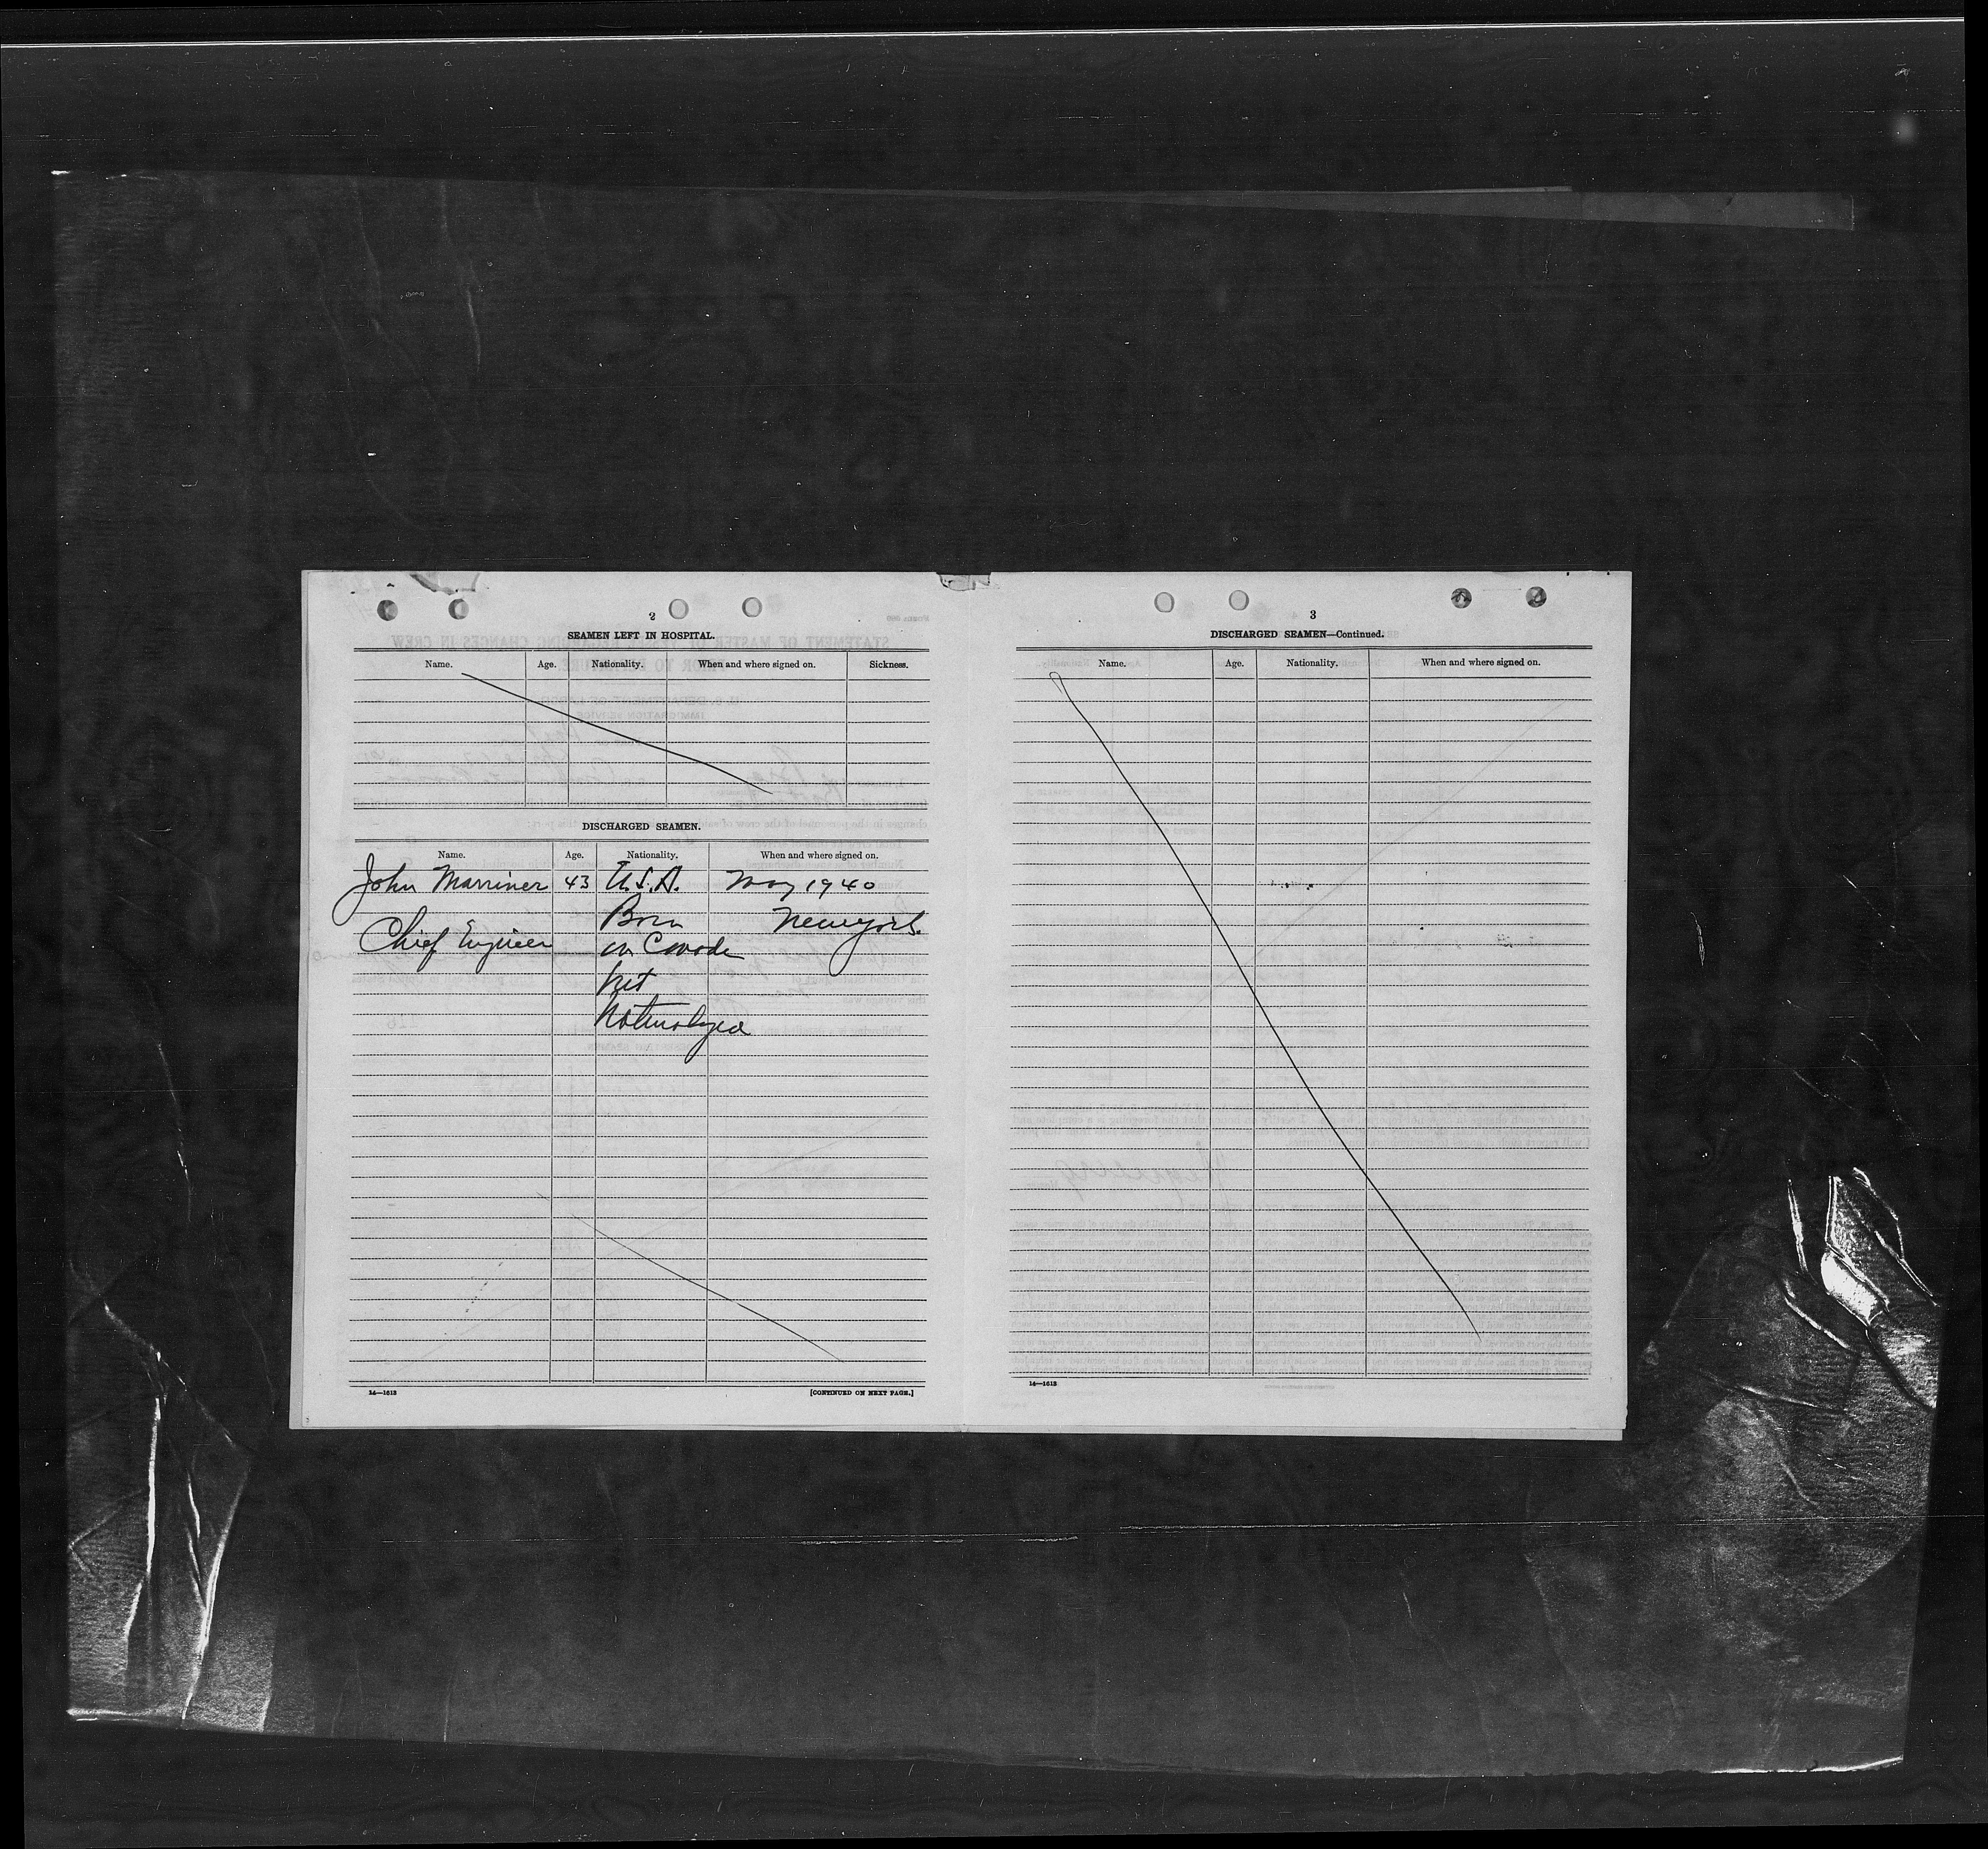 2
SEAMEN LEFT IN HOSPITAL.
Name. Age. Nationality. When and where signed on. Sickness.
DISCHARGED SEAMEN.
Name. Age. Nationality. When and where signed on.
John Marriner 43 U.S.A. May 1940
Born New York.
Chief Engineer in Canada
but
Naturalized
14—1613 [CONTINUED ON NEXT PAGE.]
3
DISCHARGED SEAMEN—Continued.
Name. Age. Nationality. When and where signed on.
14—1613